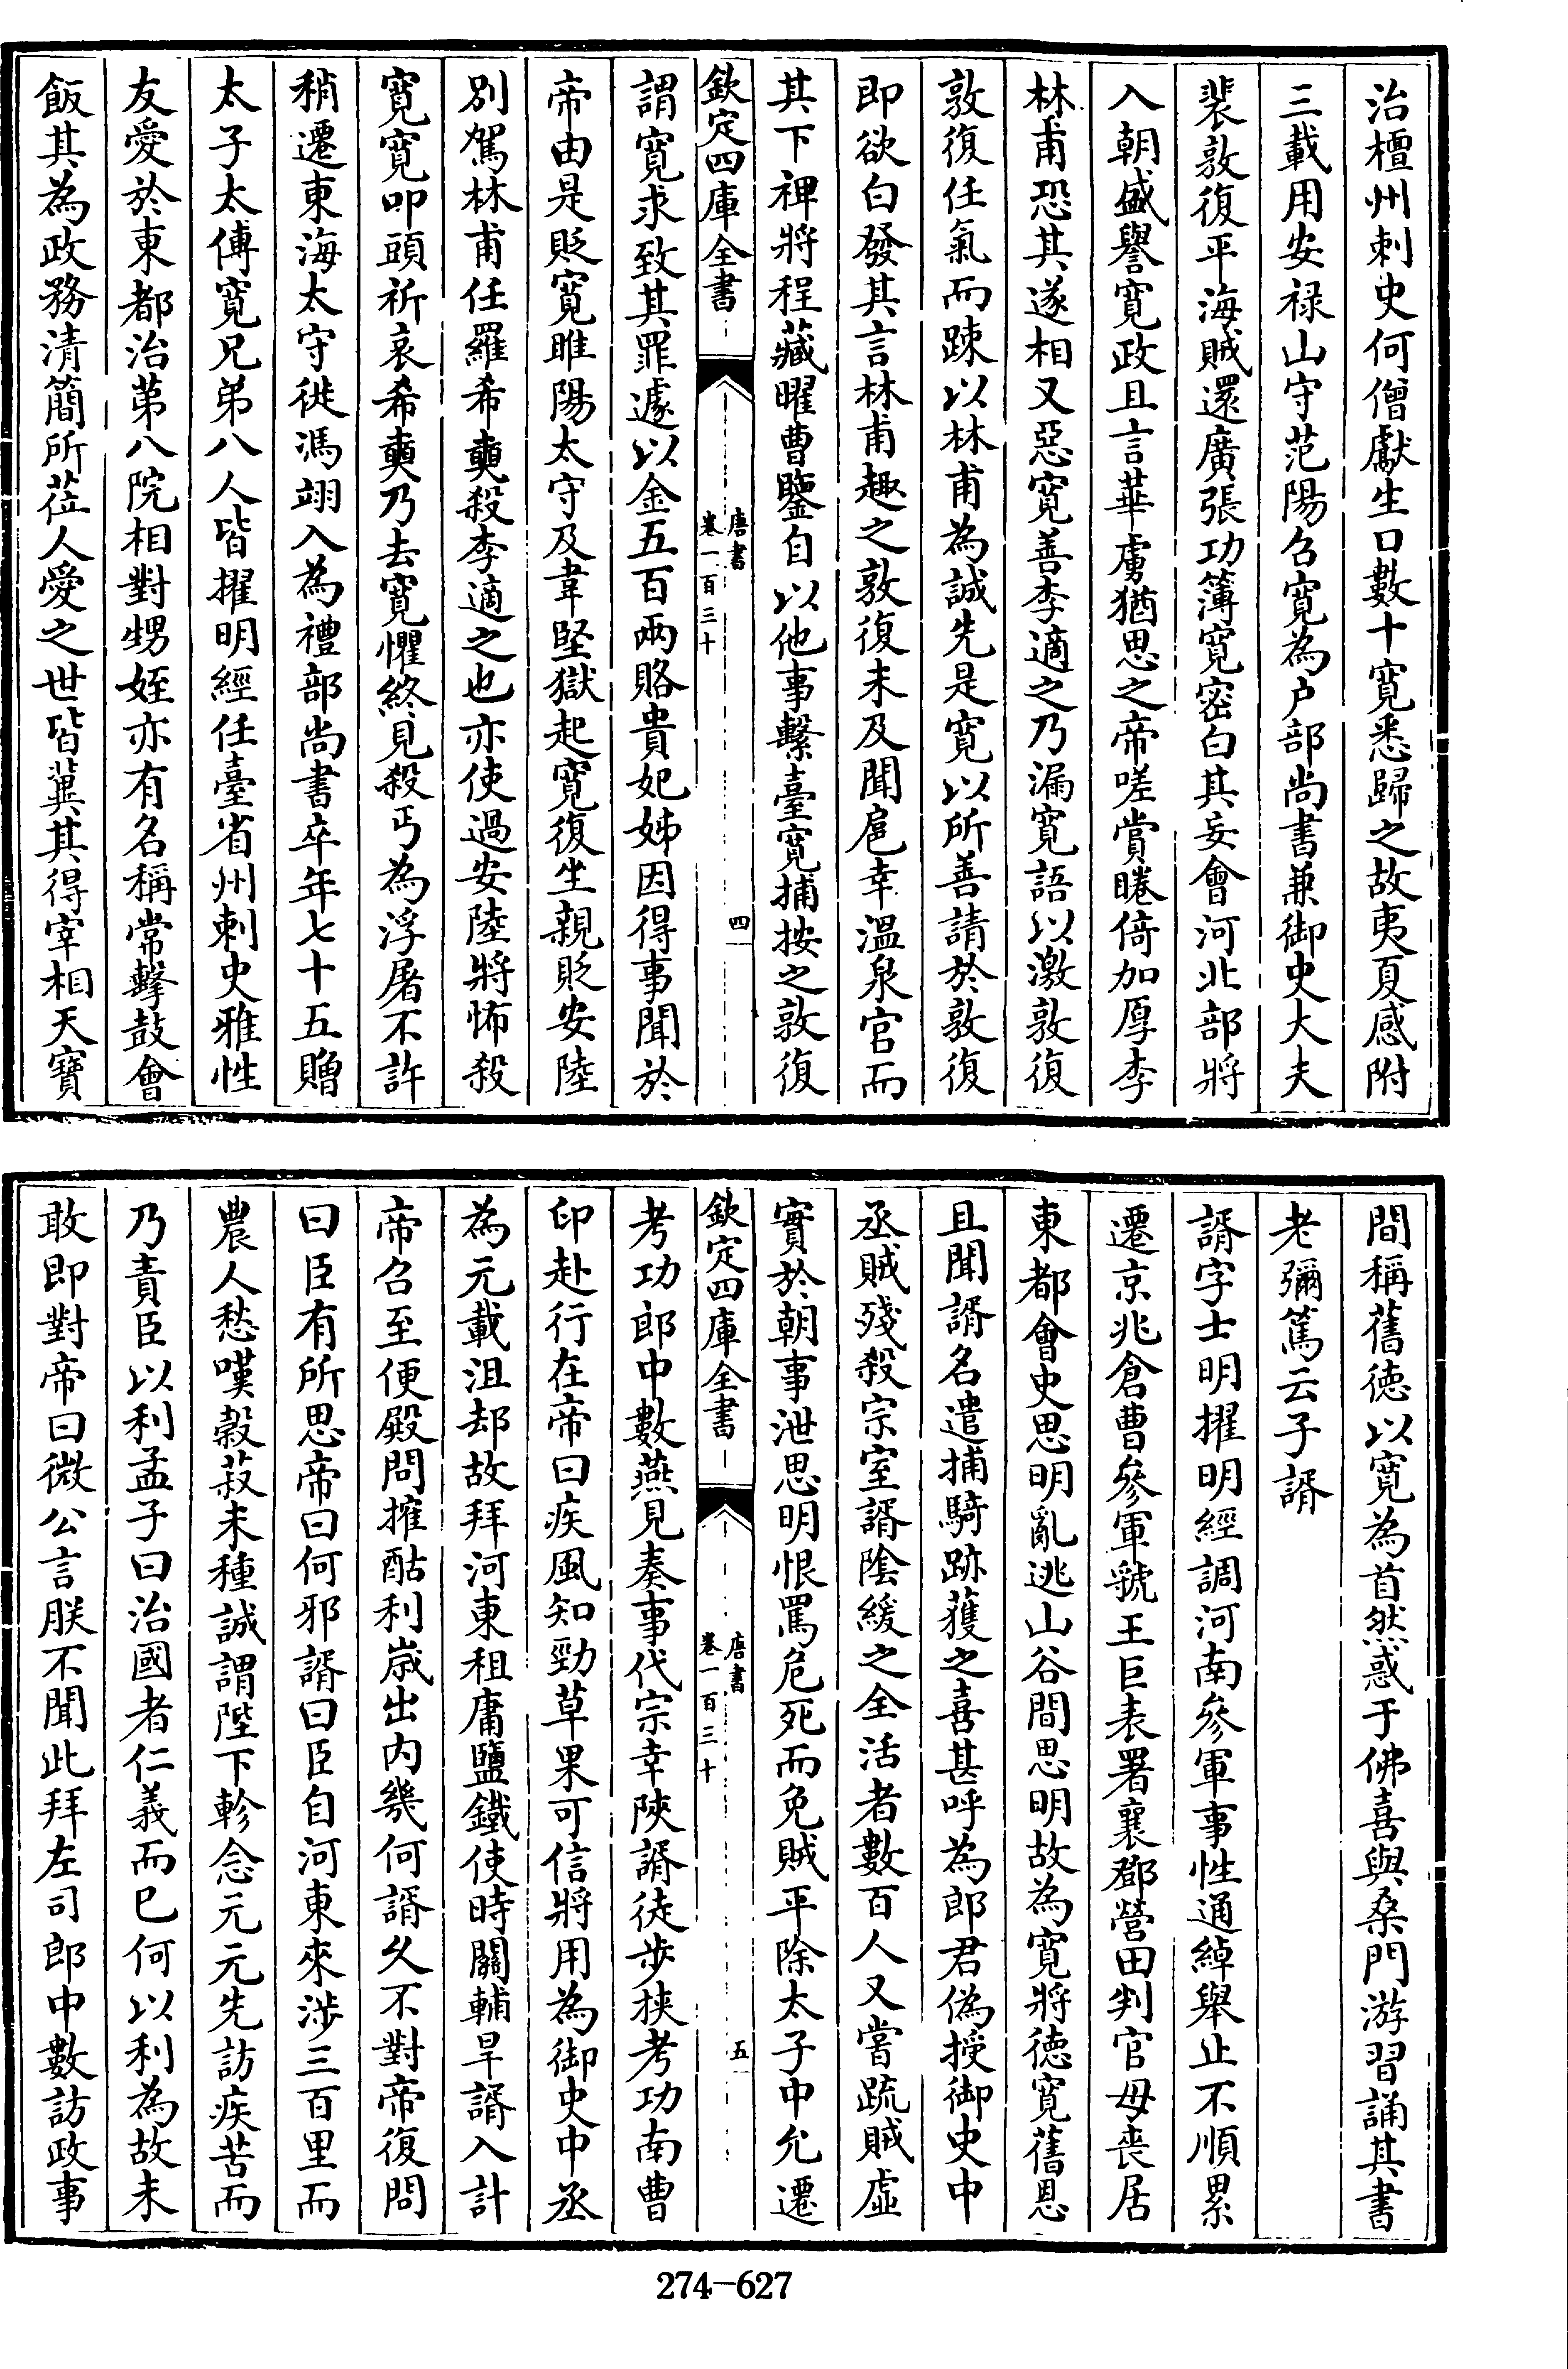 治檀州刺史何僧獻生口數十寛悉歸之故夷夏感附
三載用安禄山守范陽召寛為户部尚書兼御史大夫
裴敦復平海賊還廣張功簿寛密白其妄會河北部將
入朝盛譽寛政且言華虜猶思之帝嗟賞睠倚加厚李
林甫恐其遂相又惡寛善李適之乃漏寛語以激敦復
敦復任氣而踈以林甫為誠先是寛以所善請於敦復
即欲白發其言林甫趣之敦復未及聞扈幸温泉官而
其下裨將程藏曜曹鑒自以他事繫臺寛捕按之敦復
欽定四庫全書
唐書
卷一百三十
四
謂寛求致其罪遽以金五百兩賂貴妃姊因得事聞於
帝由是貶寛睢陽太守及韋堅獄起寛復坐親貶安陸
別駕林甫任羅希奭殺李適之也亦使過安陸將怖殺
寛寛叩頭祈哀希奭乃去寛懼終見殺丐為浮屠不許
稍遷東海太守徙馮翊入為禮部尚書卒年七十五贈
太子太傅寛兄弟八人皆擢明經任臺省州刺史雅性
友愛於東都治第八院相對甥姪亦有名稱常擊鼓會
飯其為政務清簡所莅人愛之世皆冀其得宰相天寶
間稱舊徳以寛為首然惑于佛喜與桑門游習誦其書
老彌篤云子諝
諝字士明擢明經調河南參軍事性通綽舉止不順累
遷京兆倉曹參軍虢王巨表署襄鄧營田判官母喪居
東都會史思明亂逃山谷間思明故為寛將徳寛舊恩
且聞諝名遣捕騎跡獲之喜甚呼為郎君偽授御史中
丞賊殘殺宗室諝陰緩之全活者數百人又嘗疏賊虛
實於朝事泄思明恨罵危死而免賊平除太子中允遷
欽定四庫全書
唐書
卷一百三十
五
考功郎中數燕見奏事代宗幸陜諝徒步挾考功南曹
印赴行在帝曰疾風知勁草果可信將用為御史中丞
為元載沮却故拜河東租庸鹽鐵使時關輔旱諝入計
帝召至便殿問搉酤利嵗出内幾何諝久不對帝復問
曰臣有所思帝曰何邪諝曰臣自河東來涉三百里而
農人愁嘆榖菽未種誠謂陛下軫念元元先訪疾苦而
乃責臣以利孟子曰治國者仁義而已何以利為故未
敢即對帝曰微公言朕不聞此拜左司郎中數訪政事
274-627